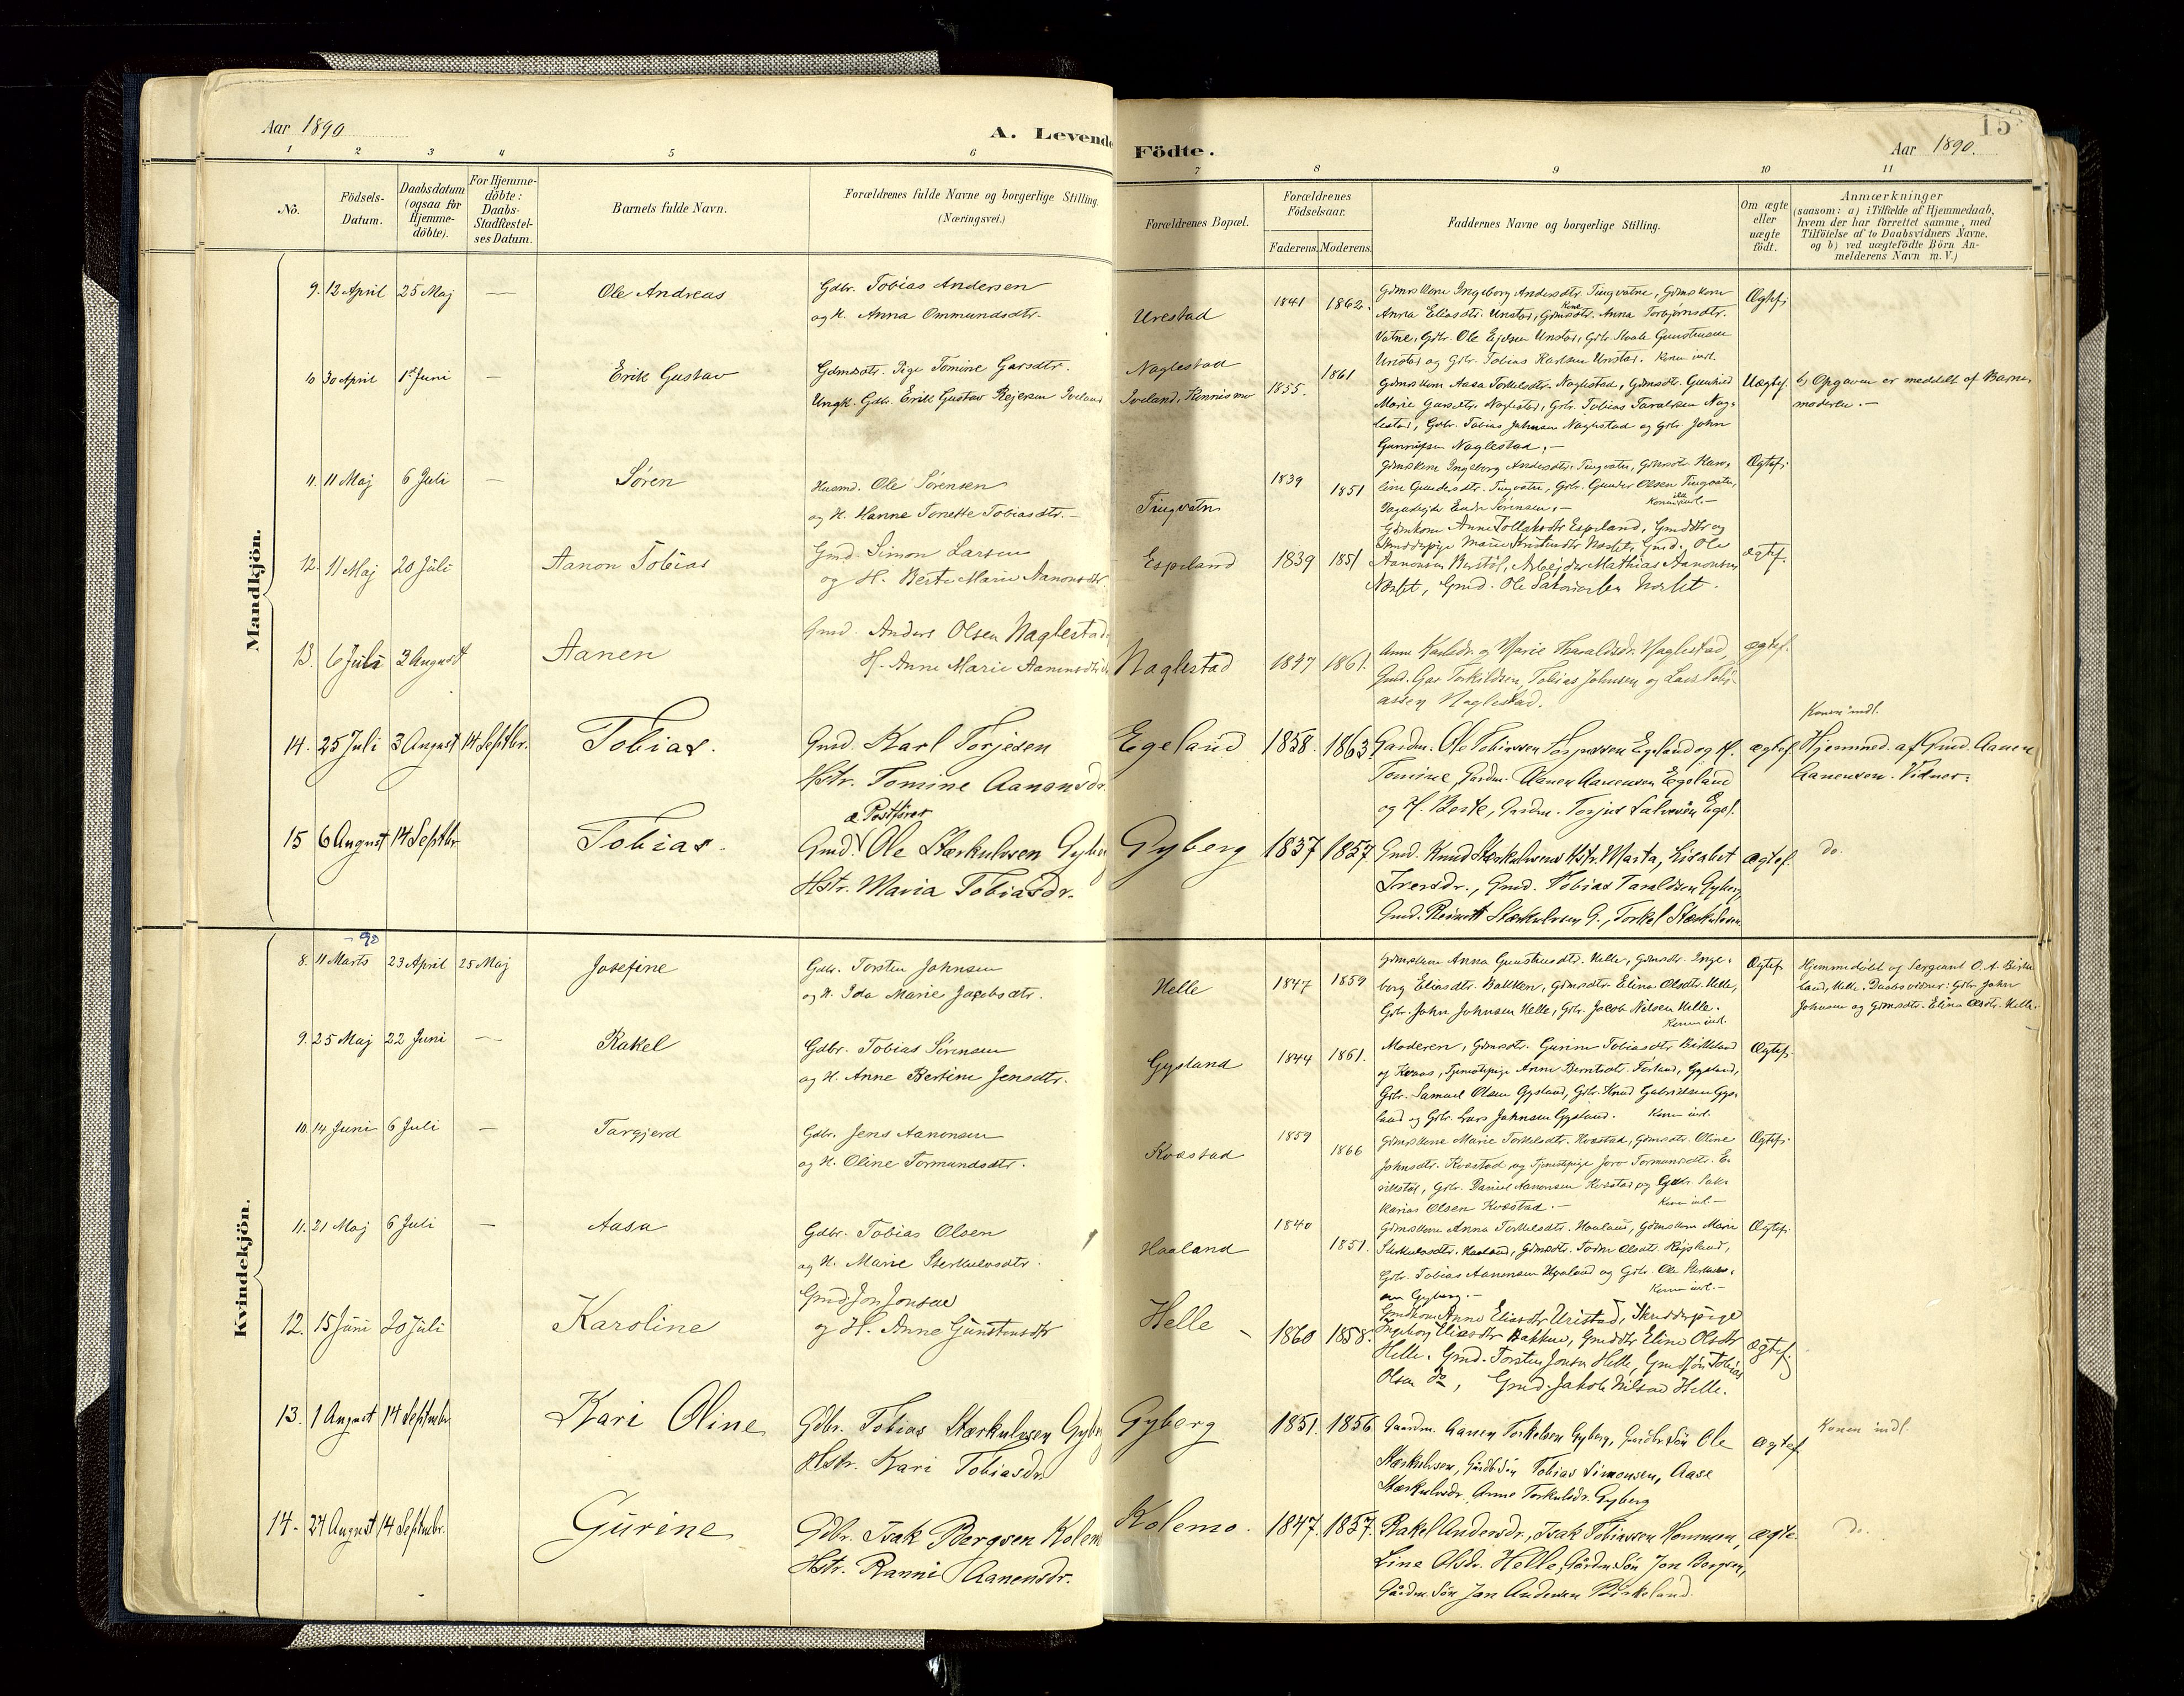 Aar 1890
A. Levende Födte.
15
Aar 1890.
1 2 3 4 5 6 7 8 9 10 11
No.
Födsels-Datum.
Daabsdatum (ogsaa for Hjemme-döbte).
For Hjemme-döbte: Daabs-Stadfæstel-ses Datum.
Barnets fulde Navn.
Forældrenes fulde Navne og borgerlige Stilling. (Næringsvei.)
Forældrenes Bopæl.
Forældrenes Födselsaar.
Faderens. Moderens.
Faddernes Navne og borgerlige Stilling.
Om ægte eller uægte födt.
Anmærkninger
(saasom: a) i Tilfælde af Hjemmedaab,
hvem der har forrettet samme, med
Tilföielse af to Daabsvidners Navne,
og b) ved uægtefödte Börn An-
melderens Navn m. V.)
Mandkjön.
9. 12 April 25 Maj — Ole Andreas
Gdbr. Tobias Andersen
og H. Anna Ommundsdtr.
Urestad 1841 1862.
Gdmskone Ingeborg Andersdtr. Tingvatne, Gdmskone
Anna Eliasdtr. Unstad, Gdmdtr. Anna Torbjørnsdtr.
Vatne, Gdbr. Ole Unstad, Gdbr. Gunstensen
Unstad og Gdbr. Tobias Karlsen Unstad. Konen indl.
Ægtef.
10 30 April 1st Juni — Erik Gustav
Gdmdtr. Pige Tomine Garsdtr.
Ungk. Gdbr. Erik Gustav Rejersen Iveland
Naglestad
Iveland, 1855. 1861
Gdmskone Aasa Torkelsdtr. Naglestad, Gdmdtr. Gunhild
Marie Garsdtr. Naglestad, Gdbr. Tobias Taraldsen Nag-
lestad, Gdbr. Tobias Johnsen Naglestad og Gdbr. John
Naglestad.—
Uægtef.
b) Opgaven er meddelt af Barne-
moderen.—
11. 11 Maj 6 Juli — Søren
Husmd. Ole Sørensen
og H. Hanne Tonette Tobiasdtr.—
Tingvatn 1839 1851
Gdmskone Ingeborg Andersdtr. Tingvatn, Gdmdtr. Karo-
line Gundersdtr. Tingvatn, Gdbr. Gunder Olsen Tingvatn,
Sørensen.— Konen indl.—
Ægtef.
12. 11 Maj 20 Juli Aanon Tobias
Gmd. Simon Larsen
og H. Berte Marie Aanonsdtr.
Espeland 1839 1851
Gdmkone Anne Espeland, Gmddtr og
Marie Gmd. Ole
Aanonsen Arbejder Mathias Aanonsen
Gmd. Ole
ægtef.
13. 6 Juli 3 August Aanen
Gmd. Anders Olsen Naglestad
H. Anne Marie Aanensdtr
Naglestad 1847 1861.
Anne Karlsdr. og Marie Tharaldsdr. Naglestad,
Gmd. Gar Torkildsen, Tobias Johnsen og Lars Tobi-
assen Naglestad.
ægtef.
14. 25 Juli 3 August 14 Septbr. Tobias.
Gmd. Karl Torjesen
Hstr. Tomine Aanensdr.
Egeland 1858. 1863.
Gardm. Ole Tobiassen Egeland og H.
Tomine, Gardm. Aanen Aanensen Egeland
og H. Berte, Gardm. Torjus Egel.
ægtef.
Konen indl.
Hjemmed. af Gmd. Aanen
Aanensen. Vidner:
15 6 August 14 Septbr Tobias.
a Postfører
Gmd. Ole Stærkulvsen Gyberg
Hstr. Maria Tobiasdr.
Gyberg 1837 1857
Gmd. Knud Stærkulvsens Hstr. Marta, Lisabet
Iversdr., Gmd. Tobias Taraldsen Gyberg,
Gmd. Stærkulvsen G., Torkel Stærkulvsen
ægtef.
do.
Kvindekjön.
- 90
8. 11 Marts 23 April 25 Maj Josefine
Gdbr. Torsten Johnsen
og H. Ida Marie Jacobsdtr.
Helle 1847 1859
Gdmskone Anna Gunstensdtr. Helle, Gdmdtr. Inge-
borg Eliasdtr. Bakken, Gdmsdtr. Elina Olsdtr. Helle,
Gdbr. John Johnsen Helle, Gdbr. Jacob Nilsen Helle.
Konen indl.
Ægtef.
Hjemmedöbt af Sergeant O. A. Birke-
land, Helle. Daabsvidner: Gdbr. John
Johnsen og Gdmsdtr. Elina Olsdtr. Helle.
9. 25 Maj 22 Juni — Rakel
Gdbr. Tobias Sörensen
og H. Anne Bertine Jensdtr.
Gysland 1844 1861.
Moderen, Gdmsdtr. Gurine Tobiasdtr. Birkeland
og Kvaas, Tjenestepige Anne Berntsdtr. Förland, Gysland,
Gdbr. Samuel Olsen Gysland, Gdbr. Knud Gabrielsen Gys-
land og Gdbr. Lars Johnsen Gysland. Konen indl.
Ægtef.
10. 14 Juni 6 Juli — Targjerd
Gdbr. Jens Aanonsen
og H. Oline Tormundsdtr.
Kvæstad 1859 1866
Gdmskone Marie Torkelsdtr. Kvæstad, Gdmsdtr. Oline
Johnsdtr. Kvæstad og Tjenestepige Joro Tormundsdtr. E-
rikstøl, Gdbr. Daniel Aanonsen Kvæstad og Gdbr. Sak-
karias Olsen Kvæstad.— Konen indl.—
Ægtef.
11. 21 Maj 6 Juli — Aasa
Gdbr. Tobias Olsen
og H. Marie Sterkulvsdtr.
Haaland 1840 1851.
Gdmskone Anna Torkelsdtr. Haaland, Gdmskone Marie
Sterkulvsdtr. Haaland, Gdmsdtr. Olsdtr. Röjsland,
Gdbr. Tobias Aanensen Haaland og Gdbr. Ole Sterkulv-
sen Gyberg.— Konen indl.—
Ægtef.
12. 15 Juni 20 Juli Karoline
Gmd. Jon Jonsen
og H. Anne Gunstensdtr
Helle 1860 1858.
Gmdkone Anne Eliasdtr Uristad, Skreddepige
Ingeborg Eliasdtr Bakken, Gmddtr Eline Olsdtr
Helle. Gmd. Torsten Jonsen Helle, Gmdsön Tobias
Olsen do, Gmd. Jakob Nilsen Helle.
ægtef.
13. 1 August 14 Septmbr. Kari Oline
Gdbr. Tobias Stærkulvsen Gyberg
Hstr. Kari Tobiasdr.
Gyberg 1851. 1856
Gaardm. Aanen Torkelsen Gyberg, Gaardbr.sön Ole
Stærkulvsen, Gaardb.sön Tobias Simonsen, Aase
Stærkulvsdr. Anne Torkelsdr. Gyberg
ægtef.
Konen indl.
14. 27 August 14 Septmbr. Gurine
Gdbr. Isak Bergsen Kolemo
Hstr. Ranni Aanensdr.
Kolemo. 1847. 1857.
Rakel Andersdr., Isak Tobiassen Hommen,
Line Olsdr. Helle, Gårdm.sön Jon Bergsen,
Gårdm.sön Jon Andersen Birkeland.
ægte.
do.